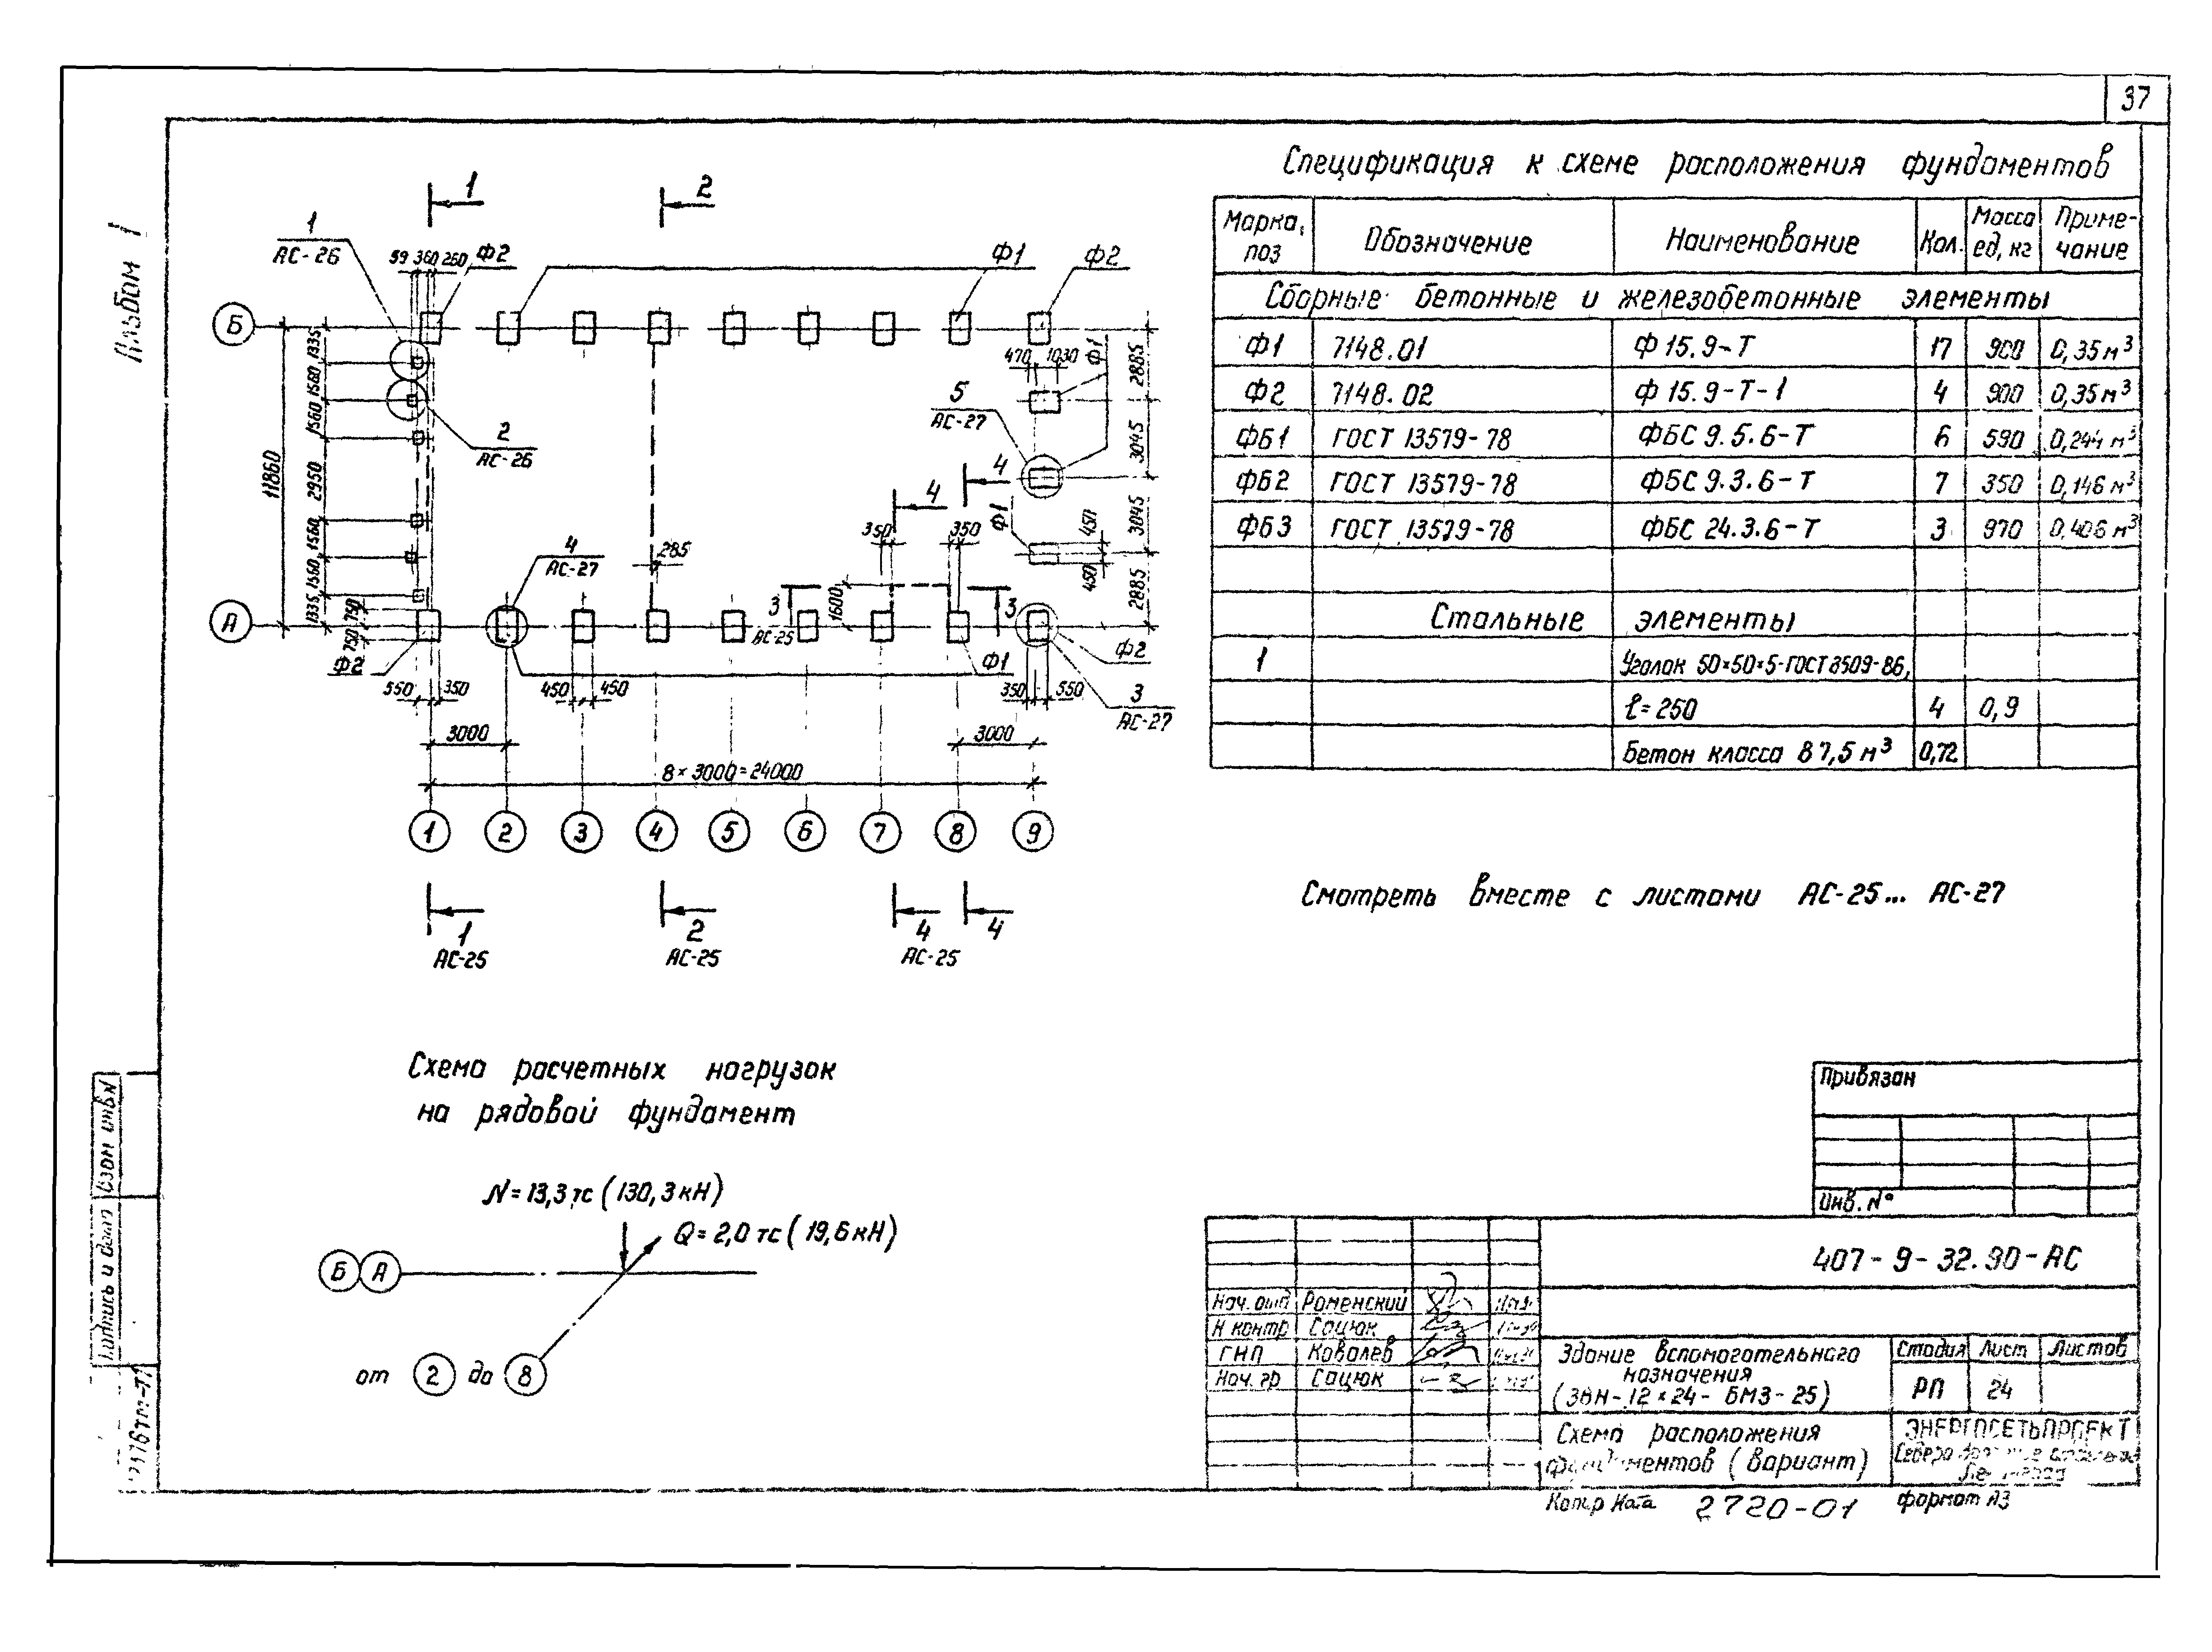 37
Альбом I
1
2
1
АС-26
59 360 260
Ф2
Ф1
Ф2
Б
1335
1560
1560
2950
1560
1560
1335
11860
2
АС-26
470 1030
Ф1
2885
3045
3045
2885
5
АС-27
4
4
Ф1
450
450
350
350
285
4
АС-27
3
АС-25
1600
3
А
750
750
Ф2
Ф1
Ф2
550 350
450 450
350 550
3
АС-27
3000
3000
8 × 3000 = 24000
1 2 3 4 5 6 7 8 9
1
АС-25
2
АС-25
4
АС-25
4
Спецификация к схеме расположения фундаментов
Марка, поз | Обозначение | Наименование | Кол. | Масса ед, кг | Примечание
Сборные бетонные и железобетонные элементы
Ф1 | 7148.01 | Ф 15.9-Т | 17 | 900 | 0,35 м³
Ф2 | 7148.02 | Ф 15.9-Т-1 | 4 | 900 | 0,35 м³
ФБ1 | ГОСТ 13579-78 | ФБС 9.5.6-Т | 6 | 590 | 0,244 м³
ФБ2 | ГОСТ 13579-78 | ФБС 9.3.6-Т | 7 | 350 | 0,146 м³
ФБ3 | ГОСТ 13579-78 | ФБС 24.3.6-Т | 3 | 970 | 0,406 м³
Стальные элементы
1 | Уголок 50×50×5-ГОСТ 8509-86,
ℓ=250 | 4 | 0,9
Бетон класса В7,5 м³ | 0,72
Смотреть вместе с листами АС-25... АС-27
Схема расчетных нагрузок
на рядовой фундамент
N = 13,3 тс (130,3 кН)
Q = 2,0 тс (19,6 кН)
Б А
от 2 до 8
Привязан
Инв. №
407-9-32.90-АС
Нач. отд Роменский
Н контр Сацюк
ГИП Ковалев
Нач. гр Сацюк
Здание вспомогательного
назначения
(ЗВН-12×24-БМЗ-25)
Стадия Лист Листов
РП 24
Схема расположения
фундаментов (вариант)
ЭНЕРГОСЕТЬПРОЕКТ
Копир Ната 2720-01 формат А3
Взам инв.N
Подпись и дата